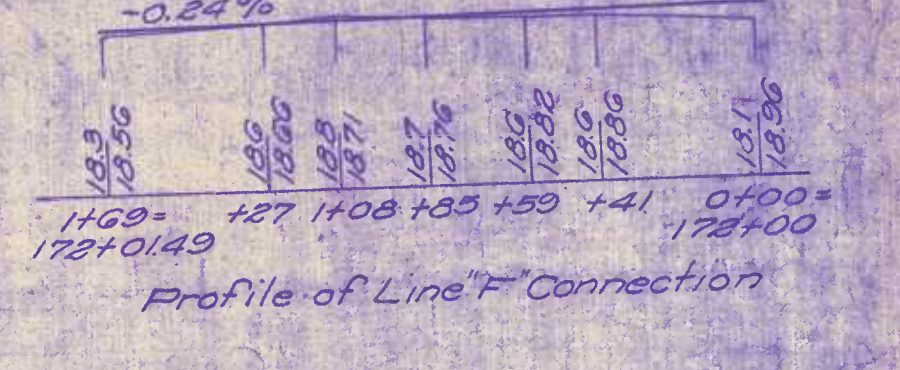 -0.24%
18.3 18.56 18.6 18.66 18.8 18.71 18.7 18.76 18.6 18.82 18.6 18.86 18.1 18.96
1+69= +27 1+08 +85 +59 +41 0+00=
172+01.49 172+00
Profile of Line "F" Connection